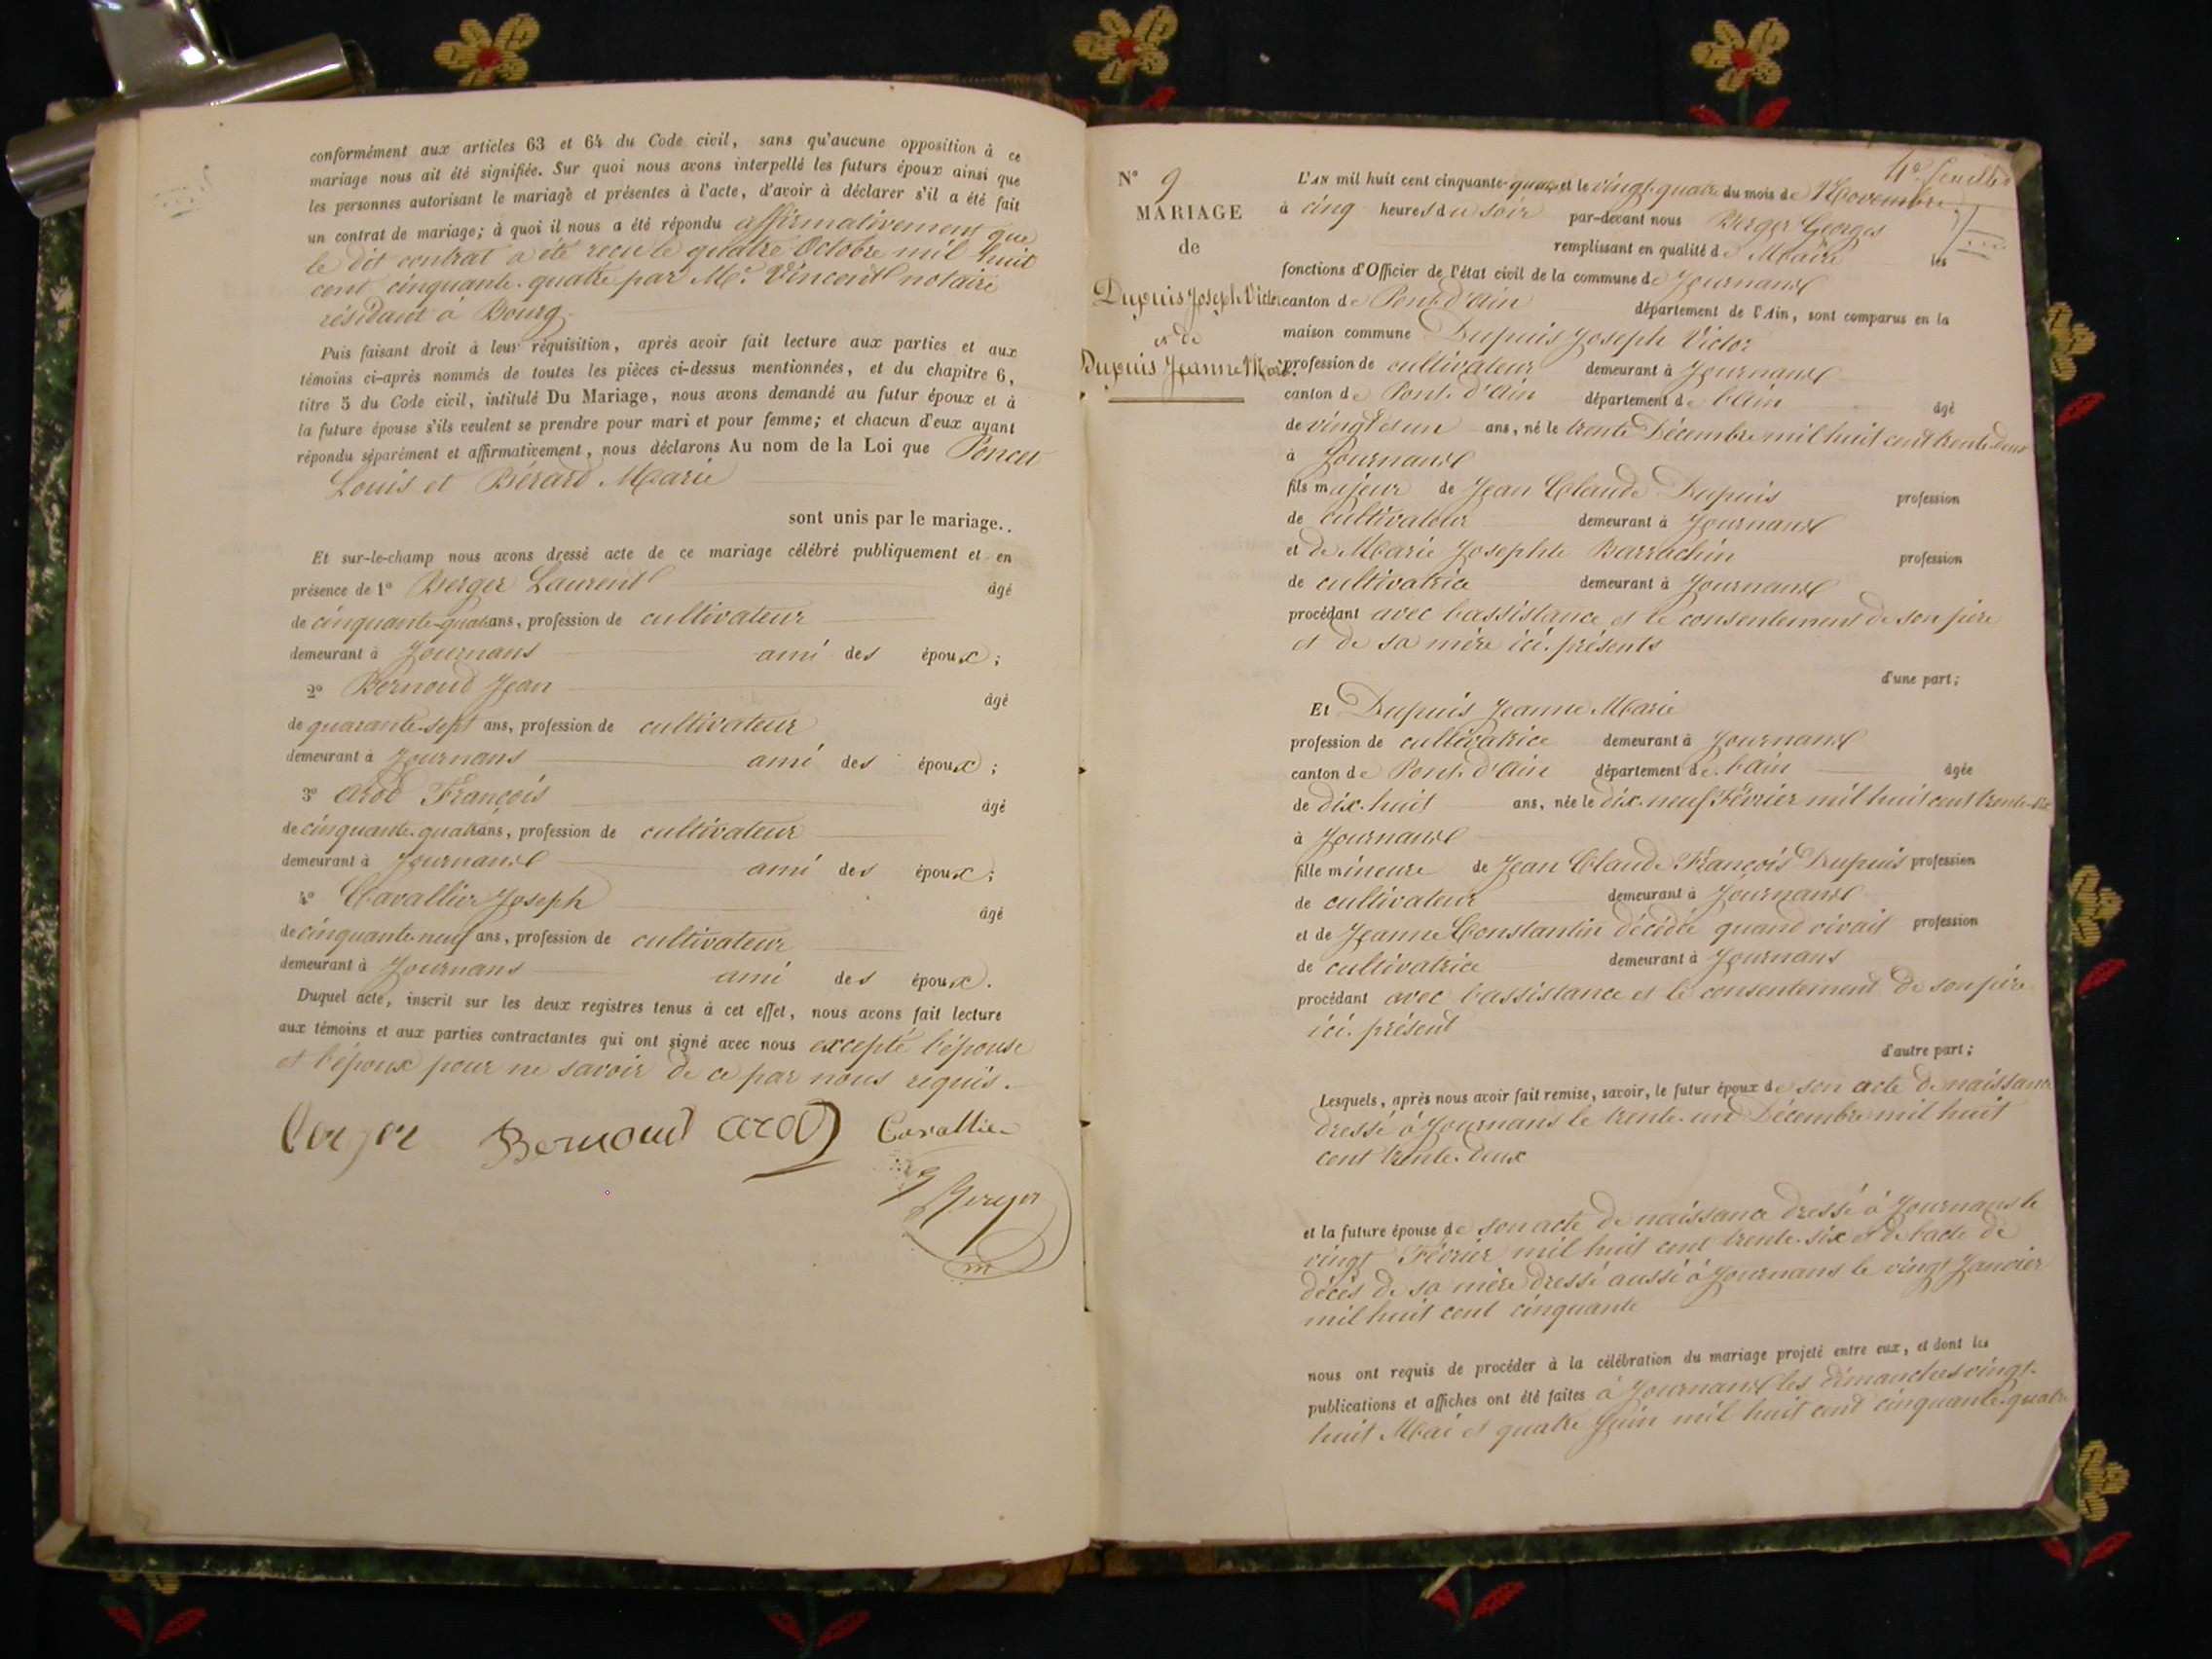 conformément aux articles 63 et 64 du Code civil, sans qu'aucune opposition à ce
mariage nous ait été signifiée. Sur quoi nous avons interpellé les futurs époux ainsi que
les personnes autorisant le mariage et présentes à l'acte, d'avoir à déclarer s'il a été fait
un contrat de mariage; à quoi il nous a été répondu affirmativement que
le dit contrat a été reçu le quatre Octobre mil huit
cent cinquante-quatre par Me. Vincent notaire
résidant à Bourg
Puis faisant droit à leur réquisition, après avoir fait lecture aux parties et aux
témoins ci-après nommés de toutes les pièces ci-dessus mentionnées, et du chapitre 6,
titre 5 du Code civil, intitulé Du Mariage, nous avons demandé au futur époux et à
la future épouse s'ils veulent se prendre pour mari et pour femme; et chacun d'eux ayant
répondu séparément et affirmativement, nous déclarons Au nom de la Loi que Poncet
Louis et Bérard Marie
sont unis par le mariage.
Et sur-le-champ nous avons dressé acte de ce mariage célébré publiquement et en
présence de 1º Berger Laurent âgé
de cinquante-quatre ans, profession de cultivateur
demeurant à Journans ami des époux;
2º Bernoud Jean âgé
de quarante-sept ans, profession de cultivateur
demeurant à Journans ami des époux;
3º Arod François âgé
de cinquante-quatre ans, profession de cultivateur
demeurant à Journans ami des époux;
4º Cavallier Joseph âgé
de cinquante-neuf ans, profession de cultivateur
demeurant à Journans ami des époux.
Duquel acte, inscrit sur les deux registres tenus à cet effet, nous avons fait lecture
aux témoins et aux parties contractantes qui ont signé avec nous excepté l'épouse
et l'époux pour ne savoir de ce par nous requis.
Berger Bernoud arod Cavallier
g Berger
m
4e feuillet
Nº 9
MARIAGE
de
Dupuis Joseph Victor
et de
Dupuis Jeanne Marie
L'AN mil huit cent cinquante-quatre et le vingt-quatre du mois de Novembre
à cinq heures du soir par-devant nous Berger Georges
remplissant en qualité de Maire les
fonctions d'Officier de l'état civil de la commune de Journans
canton de Pont-d'ain département de l'Ain, sont comparus en la
maison commune Dupuis Joseph Victor
profession de cultivateur demeurant à Journans
canton de Pont-d'ain département de l'ain âgé
de vingt et un ans, né le trente Décembre mil huit cent trente deux
à Journans
fils majeur de Jean Claude Dupuis profession
de cultivateur demeurant à Journans
et de Marie Josephte Barrachin profession
de cultivatrice demeurant à Journans
procédant avec l'assistance et le consentement de son père
et de sa mère ici présents
d'une part;
Et Dupuis Jeanne Marie
profession de cultivatrice demeurant à Journans
canton de Pont-d'ain département de l'ain âgée
de dix-huit ans, née le dix-neuf Février mil huit cent trente-six
à Journans
fille mineure de Jean Claude François Dupuis profession
de cultivateur demeurant à Journans
et de Jeanne Constantin décédée quand vivait profession
de cultivatrice demeurant à Journans
procédant avec l'assistance et le consentement de son père
ici présent
d'autre part;
Lesquels, après nous avoir fait remise, savoir, le futur époux de son acte de naissance
dressé à Journans le trente-un Décembre mil huit
cent trente-deux
et la future épouse de son acte de naissance dressé à Journans le
vingt Février mil huit cent trente-six et de l'acte de
décès de sa mère dressé aussi à Journans le vingt Janvier
mil huit cent cinquante
nous ont requis de procéder à la célébration du mariage projeté entre eux, et dont les
publications et affiches ont été faites à Journans les dimanches vingt-
huit Mai et quatre Juin mil huit cent cinquante-quatre